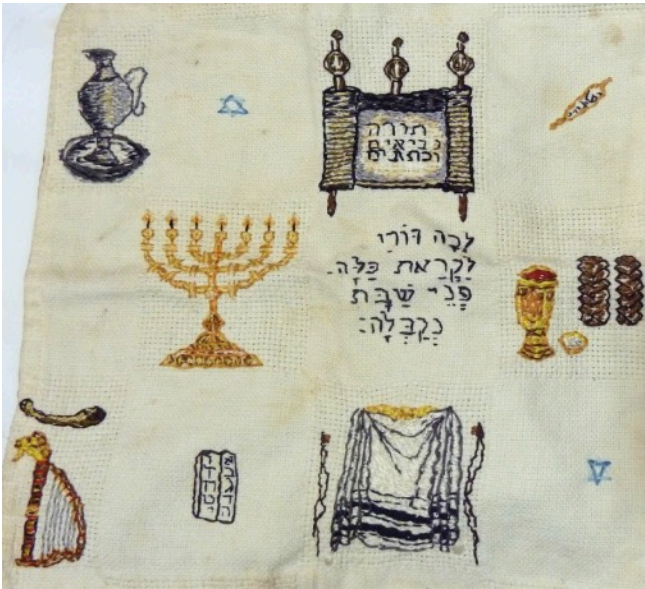 תורה
נביאים
וכתובים
לְכָה דוֹדִי
לִקְרַאת כַּלָּה.
פְּנֵי שַׁבָּת
נְקַבְּלָה: